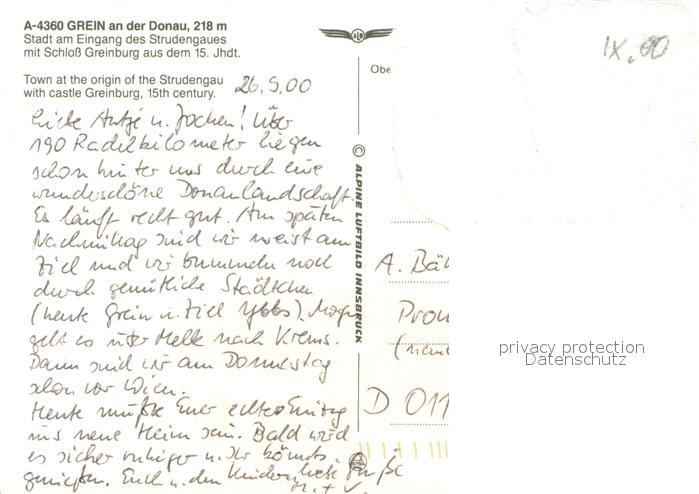 A-4360 GREIN an der Donau, 218 m
Stadt am Eingang des Strudengaues
mit Schloß Greinburg aus dem 15. Jhdt.
Town at the origin of the Strudengau
with castle Greinburg, 15th century.
26.9.00
IX.00
Obe
Liebe Antje u. Jochen! Über
190 Radelkilometer liegen
schon hinter uns durch eine
wunderschöne Donaulandschaft.
Es läuft recht gut. Am späten
Nachmittag sind wir meist am
Ziel und wir bummeln noch
durch gemütliche Städtchen
(heute Grein u. Ziel Ybbs). Morgen
geht es über Melk nach Krems.
Dann sind wir am Donnerstag
schon vor Wien.
Heute müßte Euer echter Einzug
ins neue Heim sein. Bald wird
es sicher ruhiger u. Ihr könnt's
genießen. Euch u. den Kindern liebe Grüße
© ALPINE LUFTBILD INNSBRUCK
A. Bä
Prom
D 011
privacy protection
Datenschutz